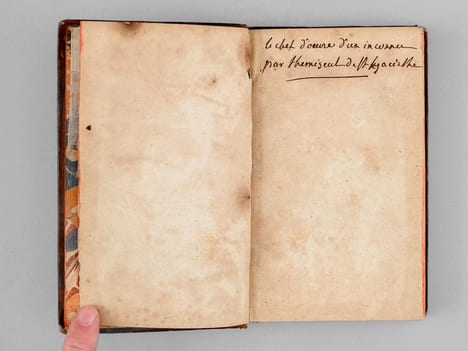 le chef d'oeuvre d'un inconnu
par themiseul de st hyacinthe